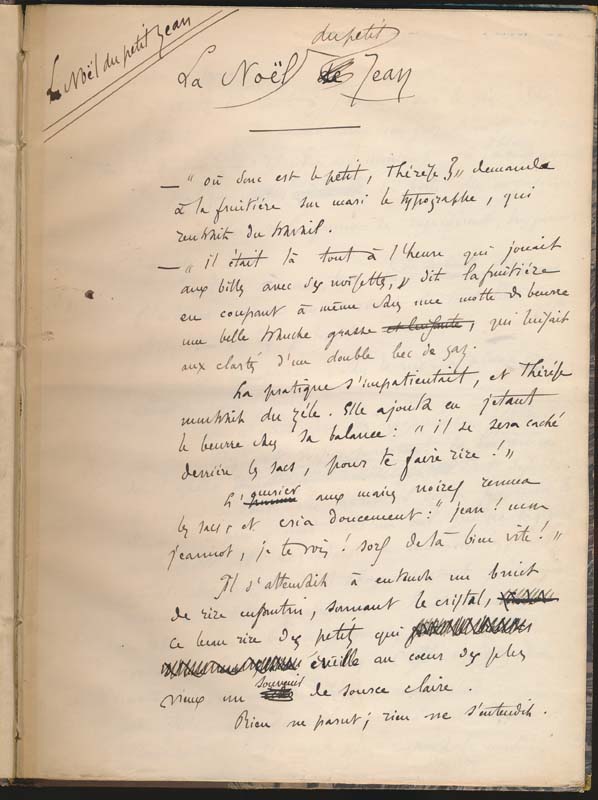 Le Noël du petit Jean
du petit
La Noël de Jean
— " où donc est le petit, Thérèse ? " demanda
à la fruitière son mari le typographe, qui
rentrait du travail.
— " il était là tout à l'heure qui jouait
aux billes avec des noisettes, " dit la fruitière
en coupant à même dans une motte de beurre
une belle tranche grasse et luisante, qui luisait
aux clartés d'un double bec de gaz.
La pratique s'impatientait, et Thérèse
montrait du zèle. Elle ajouta en jetant
le beurre dans sa balance : " il se sera caché
derrière les sacs, pour te faire rire ! "
L'ouvrier aux mains noires remua
les sacs et cria doucement : " jean ! mon
jeannot, je te vois ! sors de là bien vite ! "
Il s'attendait à entendre un bruit
de rire enfantin, sonnant le cristal,
ce beau rire des petits qui
éveille au coeur des plus
vieux un souvenir de source claire.
Rien ne parut ; rien ne s'entendit.